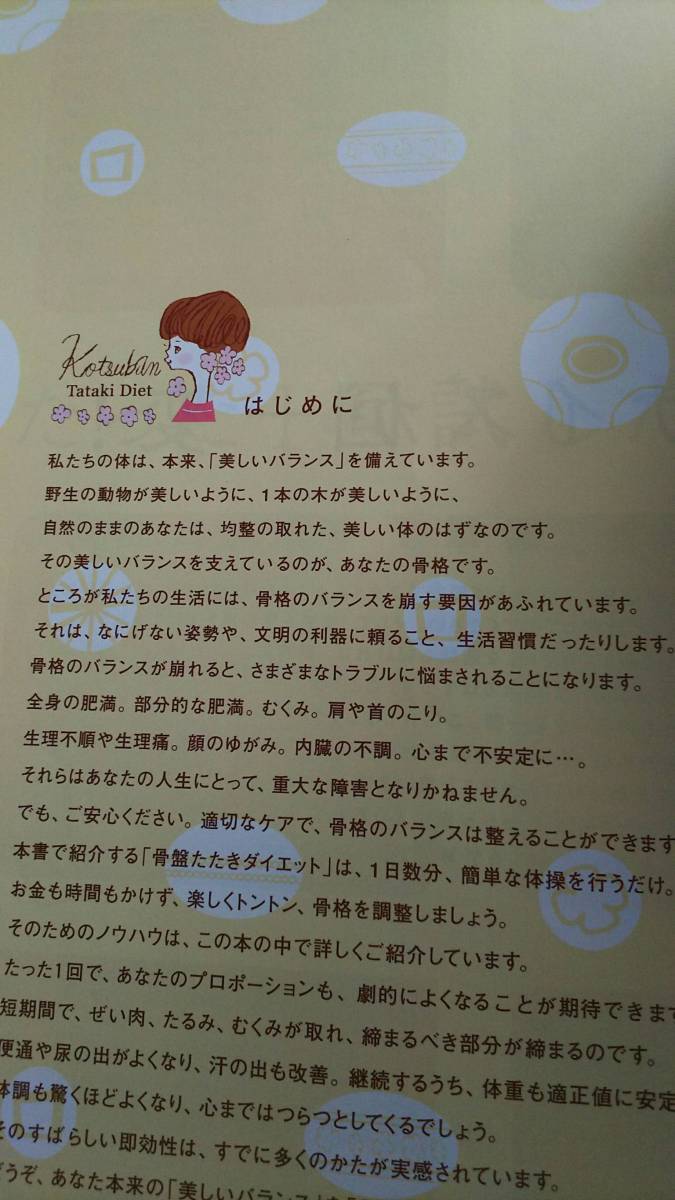 Kotsuban
Tataki Diet
はじめに
私たちの体は、本来、「美しいバランス」を備えています。
野生の動物が美しいように、1本の木が美しいように、
自然のままのあなたは、均整の取れた、美しい体のはずなのです。
その美しいバランスを支えているのが、あなたの骨格です。
ところが私たちの生活には、骨格のバランスを崩す要因があふれています。
それは、なにげない姿勢や、文明の利器に頼ること、生活習慣だったりします。
骨格のバランスが崩れると、さまざまなトラブルに悩まされることになります。
全身の肥満。部分的な肥満。むくみ。肩や首のこり。
生理不順や生理痛。顔のゆがみ。内臓の不調。心まで不安定に…。
それらはあなたの人生にとって、重大な障害となりかねません。
でも、ご安心ください。適切なケアで、骨格のバランスは整えることができます
本書で紹介する「骨盤たたきダイエット」は、1日数分、簡単な体操を行うだけ。
お金も時間もかけず、楽しくトントン、骨格を調整しましょう。
そのためのノウハウは、この本の中で詳しくご紹介しています。
たった1回で、あなたのプロポーションも、劇的によくなることが期待できます
短期間で、ぜい肉、たるみ、むくみが取れ、締まるべき部分が締まるのです。
便通や尿の出がよくなり、汗の出も改善。継続するうち、体重も適正値に安定
体調も驚くほどよくなり、心まではつらつとしてくるでしょう。
そのすばらしい即効性は、すでに多くのかたが実感されています。
どうぞ、あなた本来の「美しいバランス」を